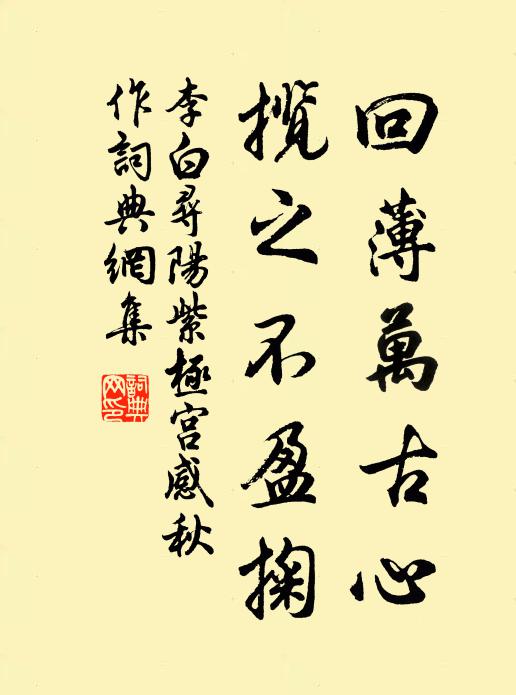 回薄萬古心
攬之不盈掬
李白尋陽紫極宮感秋
作詞典網集
詞典
网印